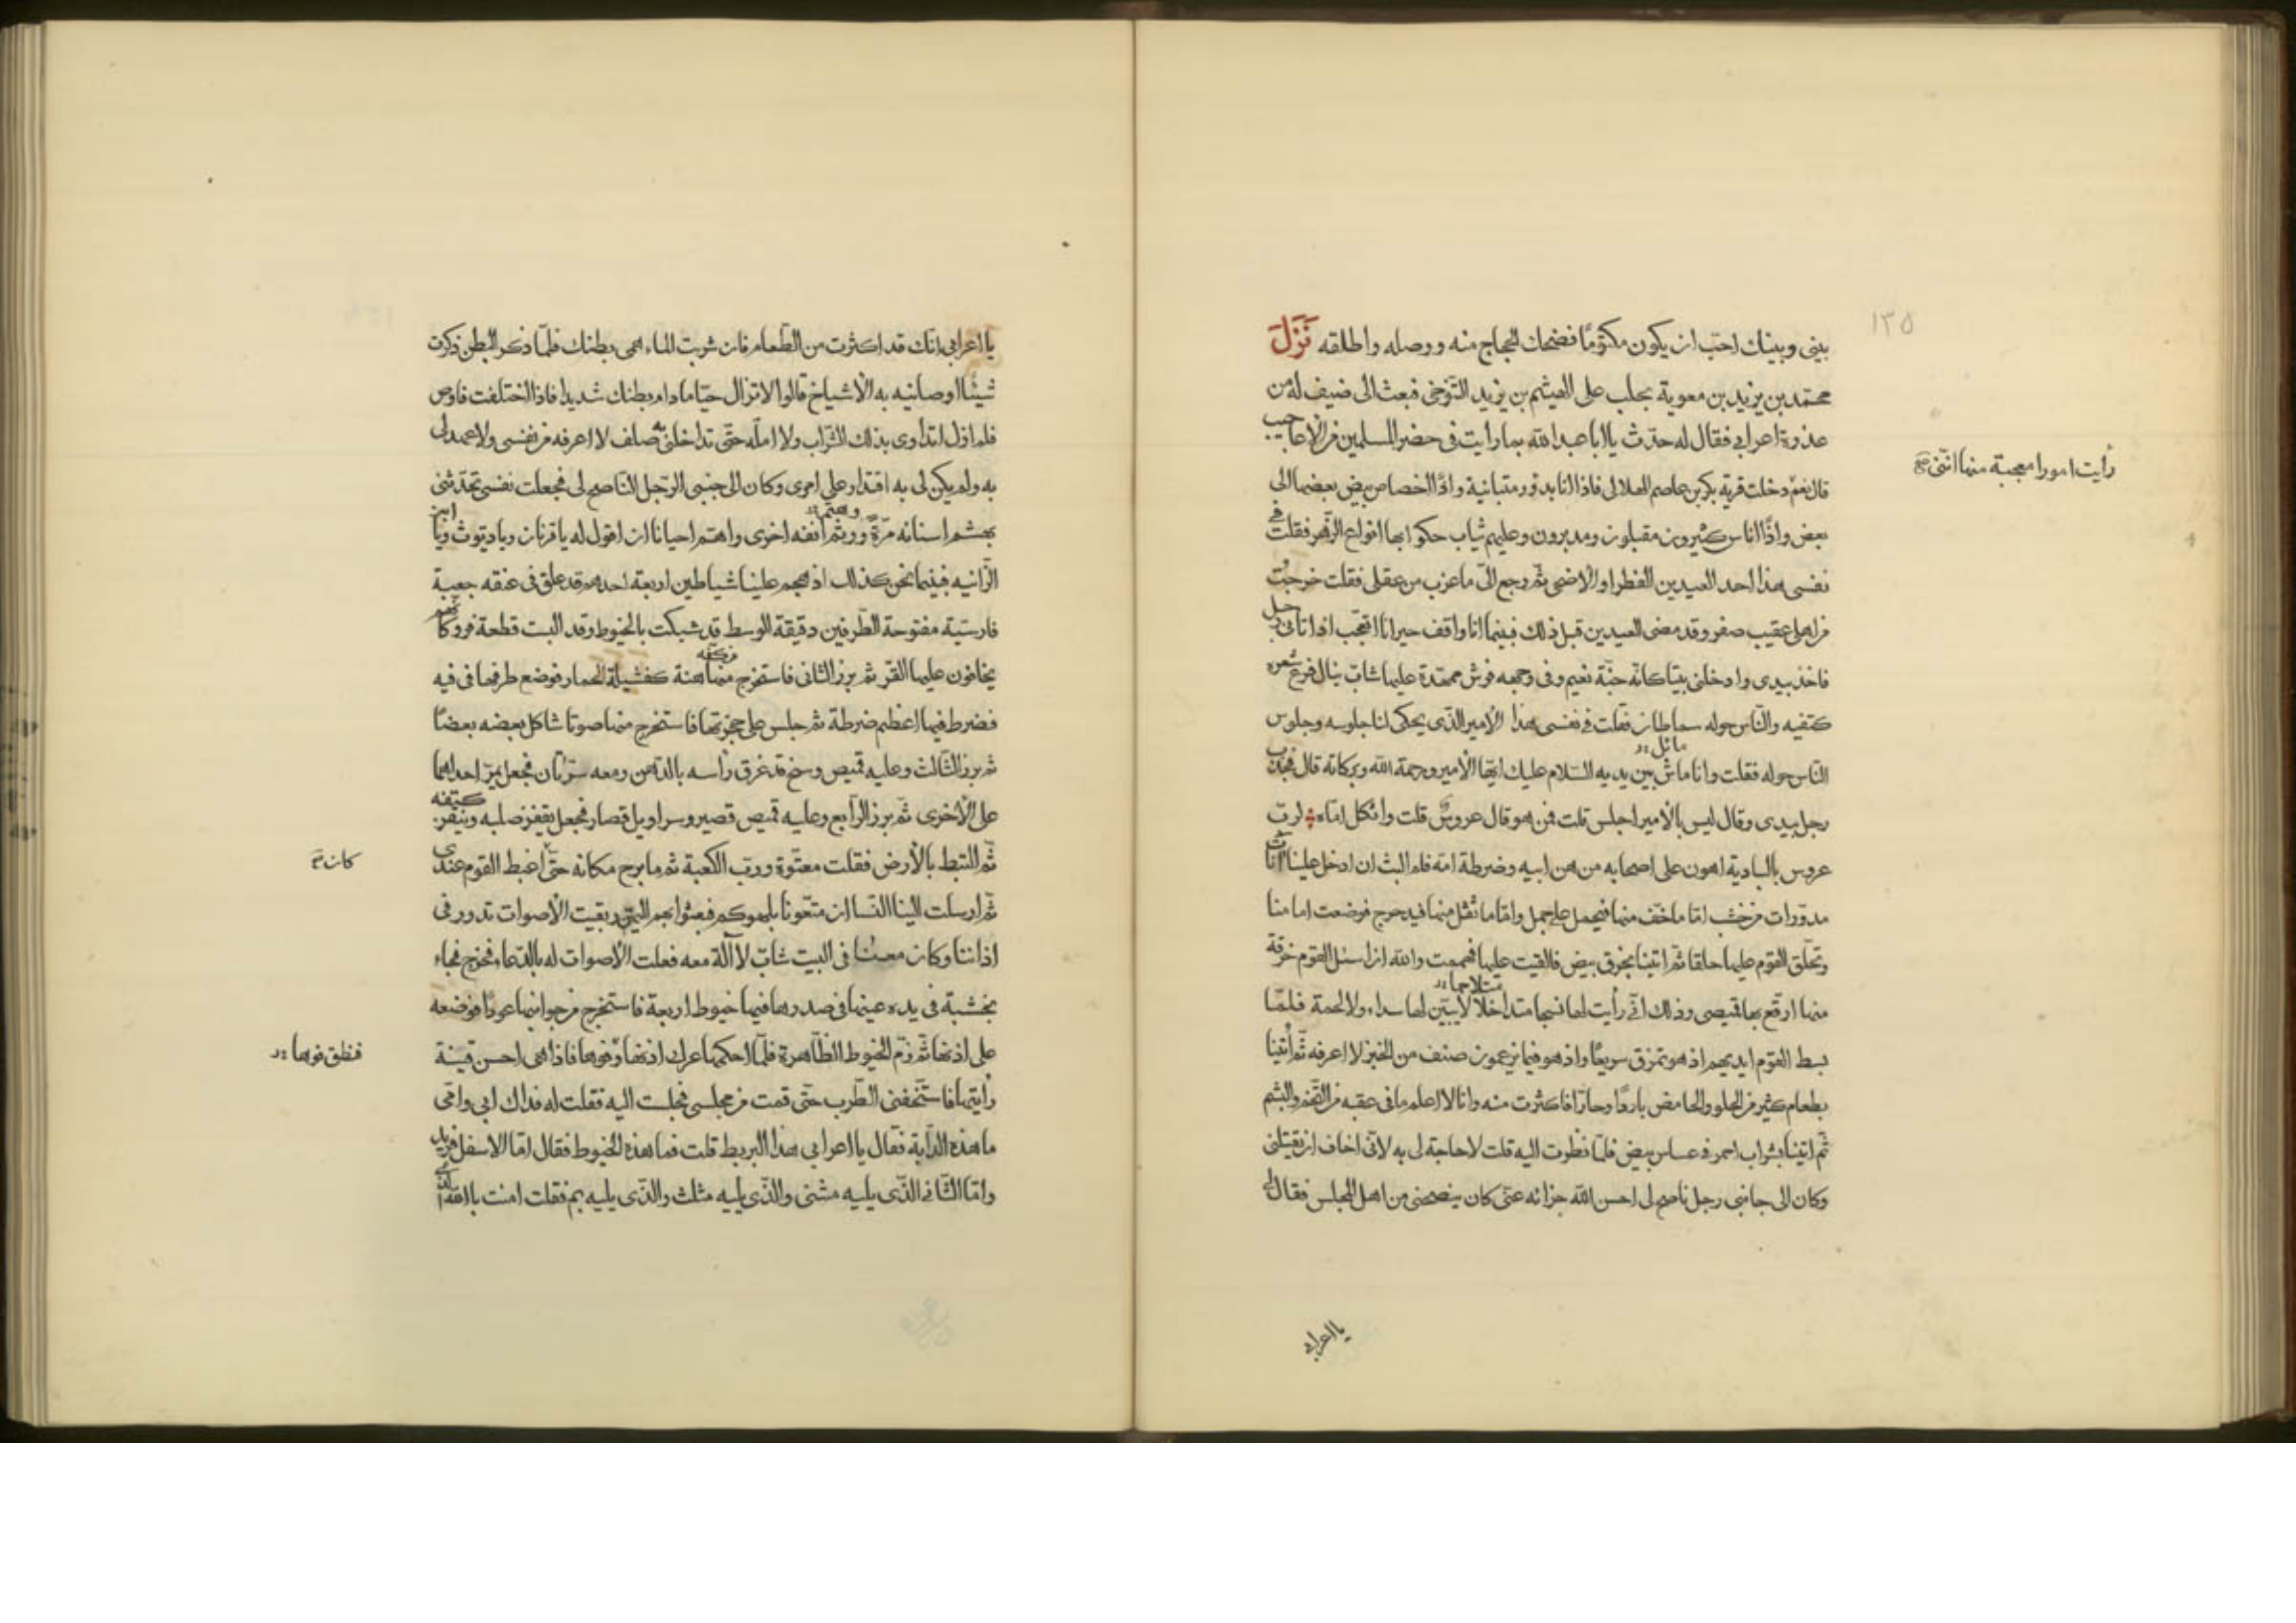 ١٣٥
بينى وبينك احبّ ان يكون مكتومًا فضحك الحجاج منه ووصله واطلقه نَزَلَ
محمّد بن يزيد بن معوية بحلب على الهيثم بن يزيد التّنوخى فبعث الى ضيف له من
عذرة اعرابى فقال له حدّث يا ابا عبد الله بما رايت فى حضر المسلمين من الاعاجيب
قال نعم دخلت قرية بكر بن عاصم الهلالى فاذا انا بدور متباينة واذا اخصاص بيض بعضها الى
رأيت امورا معجبة منها انّنى صح
بعض واذا اناس كثيرون مقبلون ومدبرون وعليهم ثياب حكوا بها انواع الزّهر فقلت فى
نفسى هذا احد العيدين الفطر او الاضحى ثم رجع الىّ ما عزب من عقلى فقلت خرجت
من اهلى عقيب صفر وقد مضى العيدين قبل ذلك فبينما انا واقف حيرانا اتعجّب اذ اتانى رجل
فاخذ بيدى وادخلنى بيتا كانّه جنّة نعيم وفى وجهه فرش ممتدة عليها شابّ ينال فرع شعره
كتفيه والنّاس حوله سماطان فقلت فى نفسى هذا الامير الذّى يحكى لنا جلوسه وجلوس
النّاس حوله فقلت وانا ماش ماثل بين يديه السّلام عليك ايّها الأمير ورحمة الله وبركاته قال فجذب
رجل بيدى وقال ليس بالامير اجلس قلت فمن هو قال عروس قلت واثكل امّاه لربّ
عروس بالبادية اهون على اصحابه من هن ابيه وضرطة امّه فلم البث ان ادخل علينا اناث
مدوّرات من خشب امّا ما خفّ منها فيحمل على جمل وامّا ما ثقل منها فيدحرج فوضعت امامنا
وتحلّق القوم عليها حلقا ثم اتينا بخرق بيض فالقيت عليها فهممت والله ان اسئل القوم خرقة
منها ارقّع بها قميصى وذلك انّى رأيت لها نسجا متداخلا متلاحما لا يبيّن لها سداء ولا لحمة فلمّا
بسط القوم ايديهم اذ هو تمزق سريعًا واذ هو فيما يزعمون صنف من الخبز لا اعرفه ثمّ أتينا
بطعام كثير من الحلو والحامض باردًا وحارًا فاكثرت منه وانا لا اعلم ما فى عقبه من التّخم والبشم
ثمّ اتينا بشراب احمر فى عساس بيض فلمّا نظرت اليه قلت لا حاجة لى به لانّى اخاف ان يقتلنى
وكان الى جانبى رجل ناصح لى احسن الله جزائه عنّى كان ينصحنى من اهل المجلس فقال لى
يا اعرابى
يا اعرابى انّك قد اكثرت من الطّعام فان شربت الماء همى بطنك فلمّا ذكر البطن ذكرت
شيئًا اوصانيه به الأشياخ قالوا لا تزال حيّا ما دام بطنك شديدا فاذا اختلفت فاوص
فلم ازل اتداوى بذلك الشّراب ولا املّه حتّى تداخلنى به صلف لا اعرفه من نفسى ولا عهد لى
به ولم يكن لى به اقتدار على امرى وكان الى جنبى الرّجل النّاصح لى فجعلت نفسى تحدّثنى
بهشم اسنانه مرّةً وهتم انفه اخرى واهتم احيانا ان اقول له يا قرنان ويا ديّوث ويا ابن
الزّانيه فبينما نحن كذلك اذ هجم علينا شياطين اربعة احدهم قد علق فى عنقه جعبة
فارسيّة مفتوحة الطّرفين دقيقة الوسط قد شبكت بالخيوط وقد البست قطعة فرو كانّهم
يخافون عليها القرّ ثم برز الثانى فاستخرج من كفّه هنة كفشيلة الحمار فوضع طرفها فى فيه
فضرط فيها اعظم ضرطة ثم جلس على حجزتها فاستخرج منها صوتا شاكل بعضه بعضًا
ثم برز الثالث وعليه قميص وسخ قد غرق رأسه بالدّهن ومعه مرّتان فجعل يمرّ احداهما
على الأخرى ثم برز الرّابع وعليه قميص قصير وسراويل قصار فجعل يقفز صلبه وينقر كتفه
ثمّ التبط بالأرض فقلت معتوه وربّ الكعبة ثم ما برح مكانه حتّى اغبط القوم عندى
كان
ثمّ ارسلت الينا النّسا ان متّعونا بلهوكم فبعثوا بهم اليهنّ وبقيت الأصوات تدور فى
اذاننا وكان معنا فى البيت شابّ لا آلة معه فعلت الأصوات له بالدّعاء فخرج فجاء
بخشبة فى يده عينها فى صدرها فيها خيوط اربعة فاستخرج من جوانبها عودًا فوضعه
على اذنها ثم زم الخيوط الظّاهرة فلمّا احكمها عرك اذنها وفوها فاذا هى احسن قينة
فنطق فوها
رأيتها فاستخفنى الطّرب حتّى قمت من مجلسى فجلست اليه فقلت له فداك ابى وامّى
ما هذه الدّابة فقال يا اعرابى هذا البربط قلت فما هذه الخيوط فقال امّا الاسفل فزير
وامّا الثّانى الذّى يليه مثنى والذّى يليه مثلث والذّى يليه بم فقلت امنت بالله